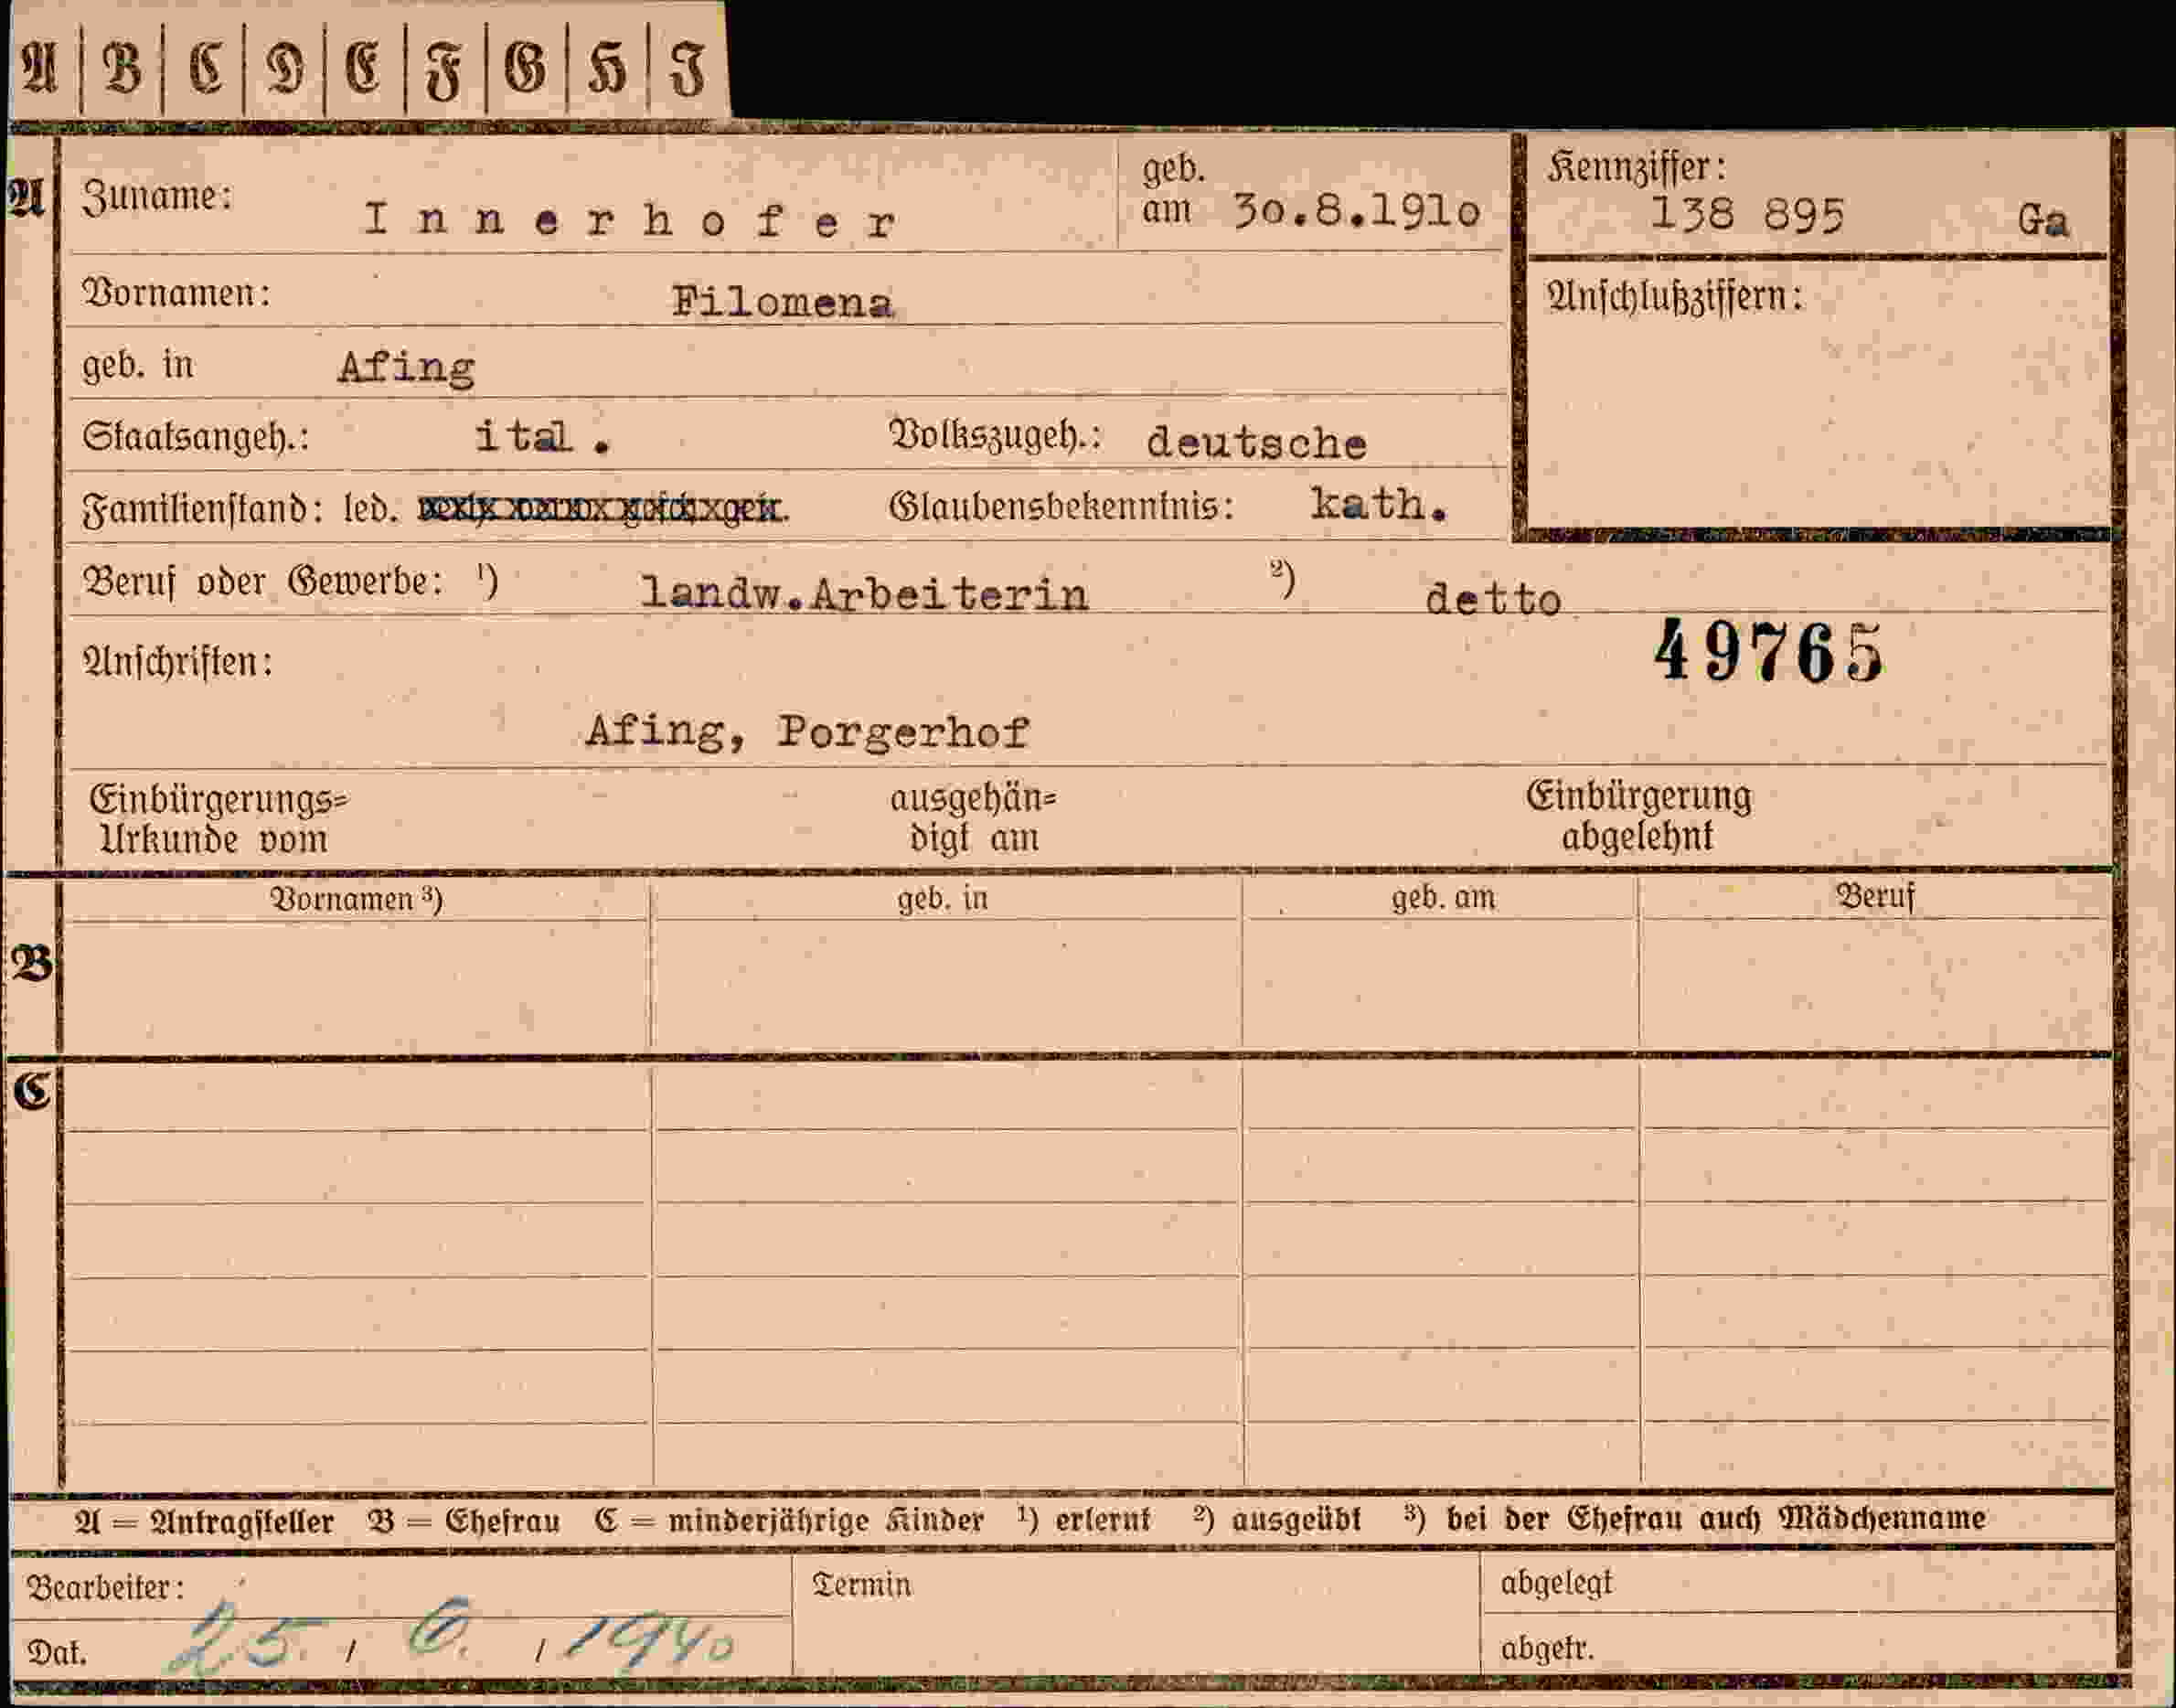 A B C D E F G H I
A Zuname: Innerhofer geb. am 30.8.1910
Kennziffer: 138 895 Ga
Vornamen: Filomena
Anschlußziffern:
geb. in Afing
Staatsangeh.: ital. Volkszugeh.: deutsche
Familienstand: led. Glaubensbekenntnis: kath.
Beruf oder Gewerbe: ¹) landw.Arbeiterin ²) detto
49765
Anschriften:
Afing, Porgerhof
Einbürgerungs= ausgehän= Einbürgerung
Urkunde vom digt am abgelehnt
Vornamen ³) geb. in geb. am Beruf
B
C
A = Antragsteller B = Ehefrau C = minderjährige Kinder ¹) erlernt ²) ausgeübt ³) bei der Ehefrau auch Mädchenname
Bearbeiter: Termin abgelegt
Dat. 25. / 6. / 1940 abgetr.